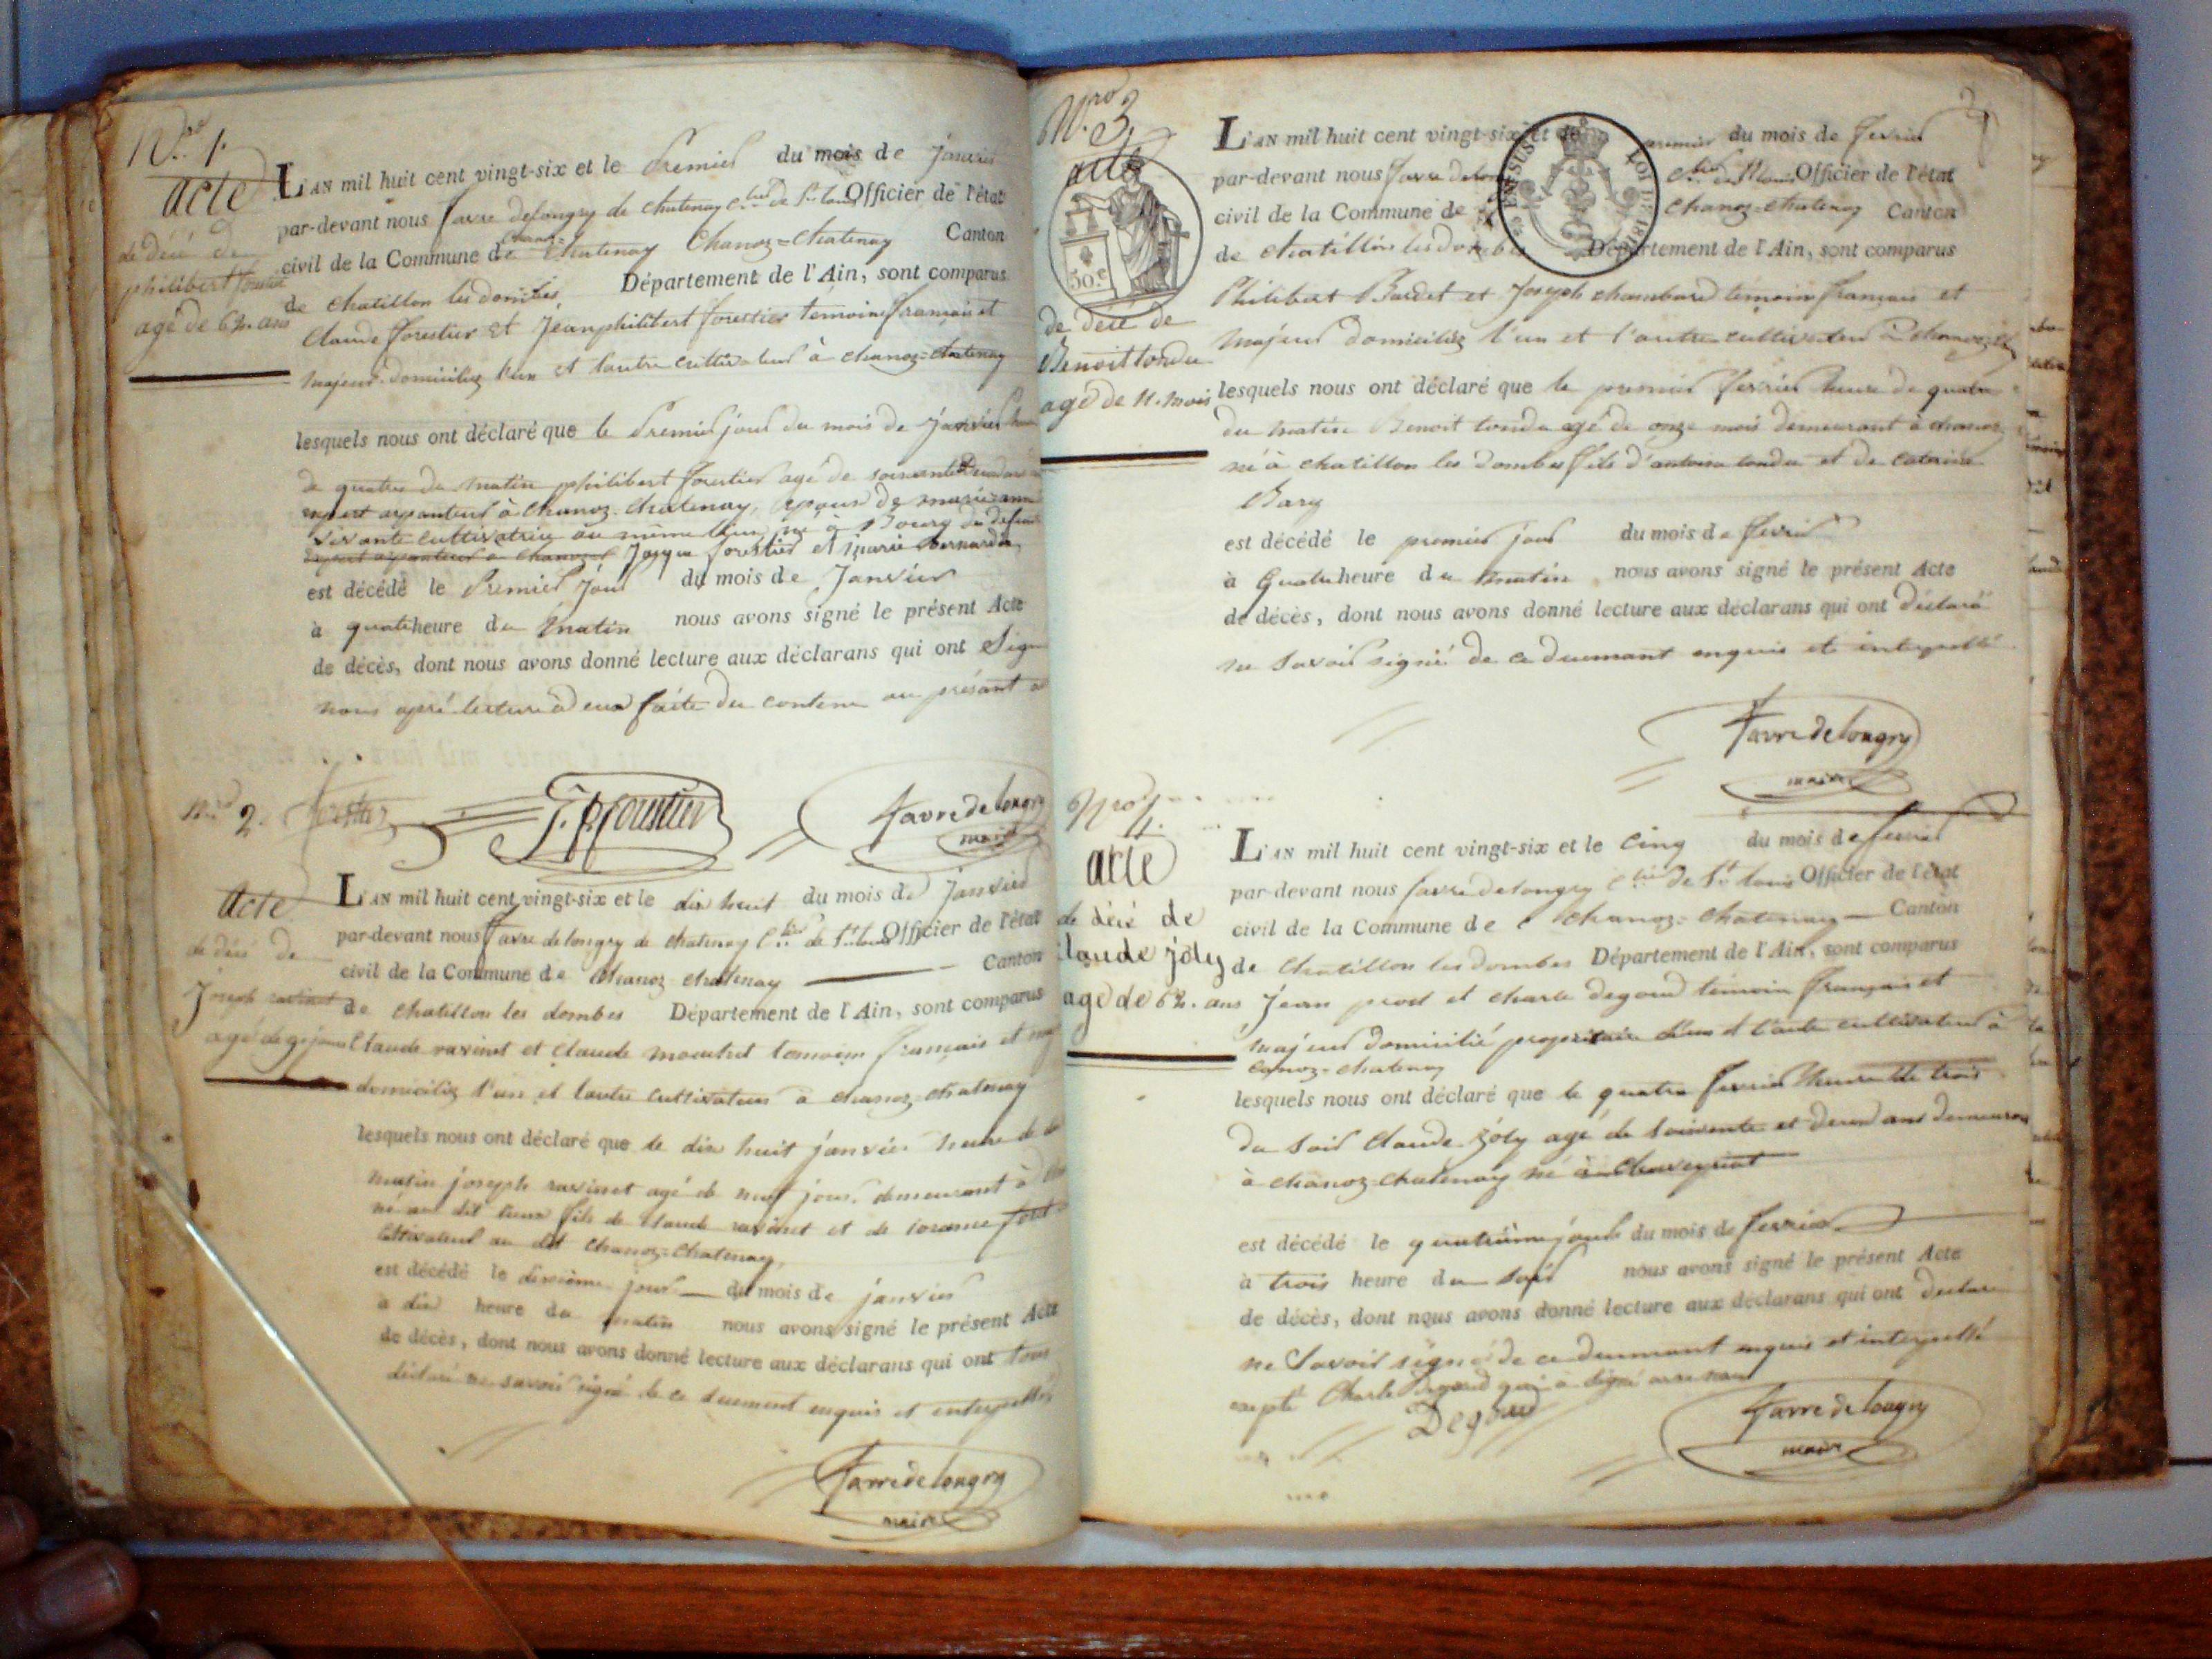 N.ro 1.
acte
de décé de
philibert forestier
agé de 62. ans
L'AN mil huit cent vingt-six et le Premier du mois de Janvier
par-devant nous favre delongry de chatenay c.lier de S.t louis Officier de l'état
civil de la Commune de chanoz= chatenay Chanoz=chatenay Canton
de chatillon les dombes, Département de l'Ain, sont comparus
Claude forestier et Jean philibert forestier temoins français et
majeurs domiciliez l'un et lautre cultivateurs à chanoz=chatenay
lesquels nous ont déclaré que le Premier jour du mois de Janvier
de quatre du matin philibert forestier agé de soixante
expert arpanteur à Chanoz-Chatenay, epoux de marie
vivante cultivatrice au même lieu, né à Bourg du defunt
Joseph forestier et marie bernardin
est décédé le Premier jour du mois de Janvier
à quatre heure du matin nous avons signé le présent Acte
de décès, dont nous avons donné lecture aux déclarans qui ont Signé
nous apré lecture à eux faite du contenu au présant
forestier J. P. forestier favre de longry
maire
N.ro 2.
acte
de décé de
Joseph ravinet
agé de 9 jours
L'AN mil huit cent vingt-six et le dix huit du mois de Janvier
par-devant nous favre delongry de chatenay c.lier de S.t louis Officier de l'état
civil de la Commune de Chanoz chatenay Canton
de chatillon les dombes Département de l'Ain, sont comparus
Claude ravinet et Claude temoins français et
domiciliez l'un et lautre cultivateurs à chanoz-chatenay
lesquels nous ont déclaré que le dix huit janvier heure de
matin joseph ravinet agé de neuf jours, demeurant à
né au dit lieu fils de Claude ravinet et de
cultivateur au dit Chanoz=Chatenay,
est décédé le jour du mois de janvier
à dix heure du matin nous avons signé le présent Acte
de décès, dont nous avons donné lecture aux déclarans qui ont tous
déclaré ne savoir signé de ce duement enquis et interpellés
favre de longry
maire
N.ro 3.
acte
50.c
de décé de
Benoit tondu
agé de 11. mois
L'AN mil huit cent vingt-six et le premier du mois de fevrier
par-devant nous favre delongry c.lier de S.t louis Officier de l'état
civil de la Commune de chanoz-chatenay Canton
de chatillon les dombes Département de l'Ain, sont comparus
Philibert Bardet et Joseph chambard temoins français et
majeurs domiciliez l'un et l'autre cultivateur à chanoz
lesquels nous ont déclaré que le premier fevrier heure de quatre
du matin Benoit tondu agé de onze mois demeurant à chanoz
né à chatillon les dombes fils d'antoine tondu et de
Bary
est décédé le premier jour du mois de fevrier
à quatre heure du matin nous avons signé le présent Acte
de décès, dont nous avons donné lecture aux déclarans qui ont déclaré
ne savoir signé de ce duement enquis et interpellé
favre de longry
maire
N.ro 4.
acte
de décé de
Claude joly
agé de 62. ans
L'AN mil huit cent vingt-six et le cinq du mois de fevrier
par-devant nous favre delongry c.lier de S.t louis Officier de l'état
civil de la Commune de Chanoz-chatenay Canton
de Chatillon les dombes Département de l'Ain, sont comparus
Jean prost et charle degoud temoin français et
majeur domicilié propritaire l'un et l'autre cultivateur à
canoz-chatenay
lesquels nous ont déclaré que le quatre fevrier heure de trois
du soir Claude joly agé de soixante et deux ans demeurant
à chanoz-chatenay né à Chaveyriat
est décédé le quatrieme jour du mois de fevrier
à trois heure du soir nous avons signé le présent Acte
de décès, dont nous avons donné lecture aux déclarans qui ont déclaré
ne savoir signé de ce duement enquis et interpellé
Charle degoud qui a signé avec nous
Degoud
favre de longry
maire